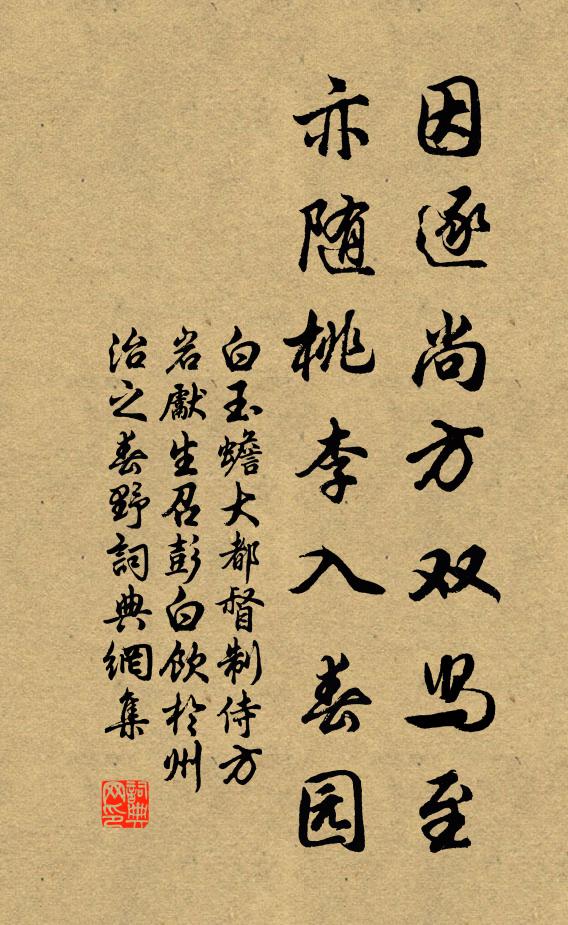 因逐尚方双舄至
亦随桃李入春园
白玉蟾大都督制侍方
岩獻生召彭白飲於州
治之春野詞典網集
詞典
网印